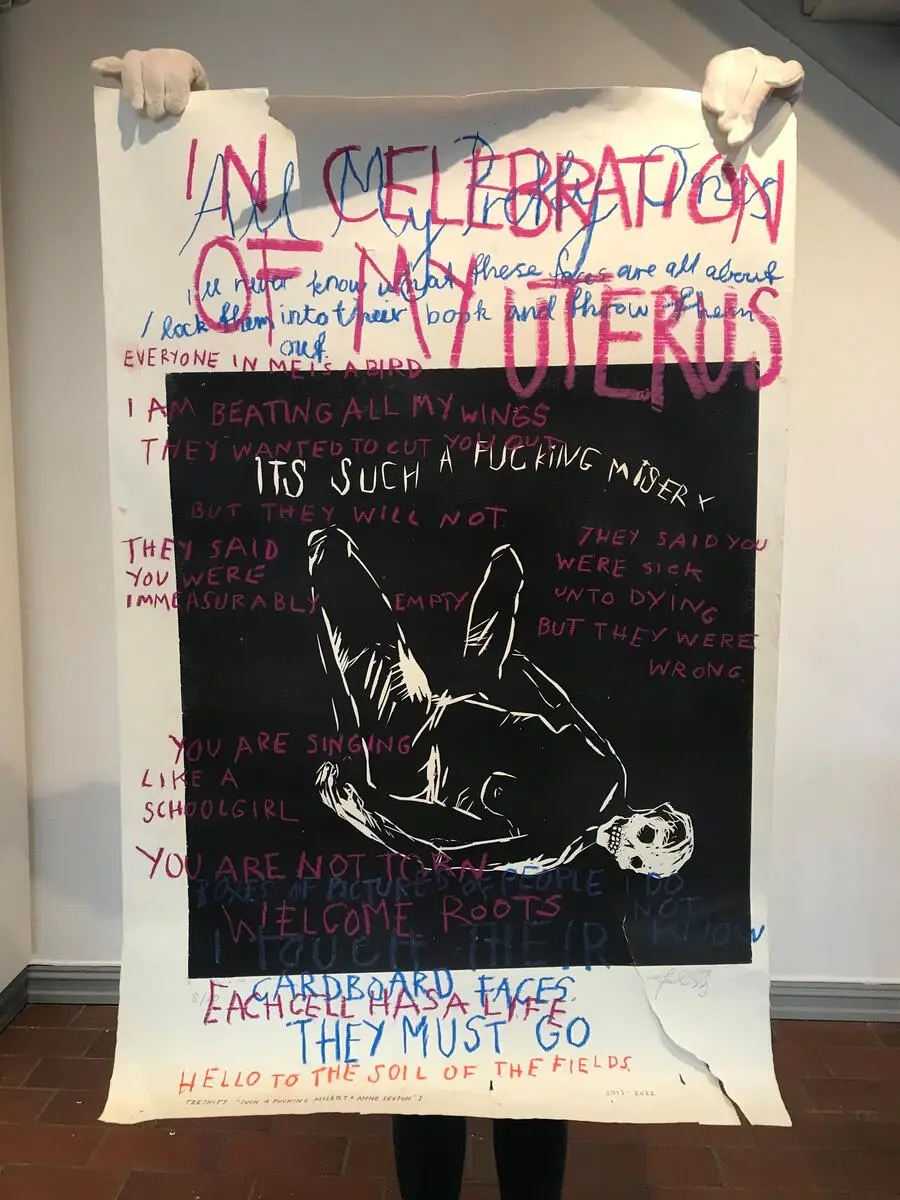 IN CELEBRATION
All My Pretty Ones
OF MY
UTERUS
I'll never know what these faces are all about
I lock them into their book and throw them
out.
EVERYONE IN ME IS A BIRD
I AM BEATING ALL MY WINGS
THEY WANTED TO CUT YOU OUT
ITS SUCH A FUCKING MISERY
BUT THEY WILL NOT
THEY SAID
YOU WERE
IMMEASURABLY EMPTY
THEY SAID YOU
WERE SICK
UNTO DYING
BUT THEY WERE
WRONG
YOU ARE SINGING
LIKE A
SCHOOLGIRL
YOU ARE NOT TORN
BOXES OF PICTURES OF PEOPLE I DO
NOT
KNOW
WELCOME ROOTS
I TOUCH THEIR
CARDBOARD FACES.
EACH CELL HAS A LIFE
THEY MUST GO
HELLO TO THE SOIL OF THE FIELDS.
"SUCH A FUCKING MISERY + ANNE SEXTON"
2013-2022